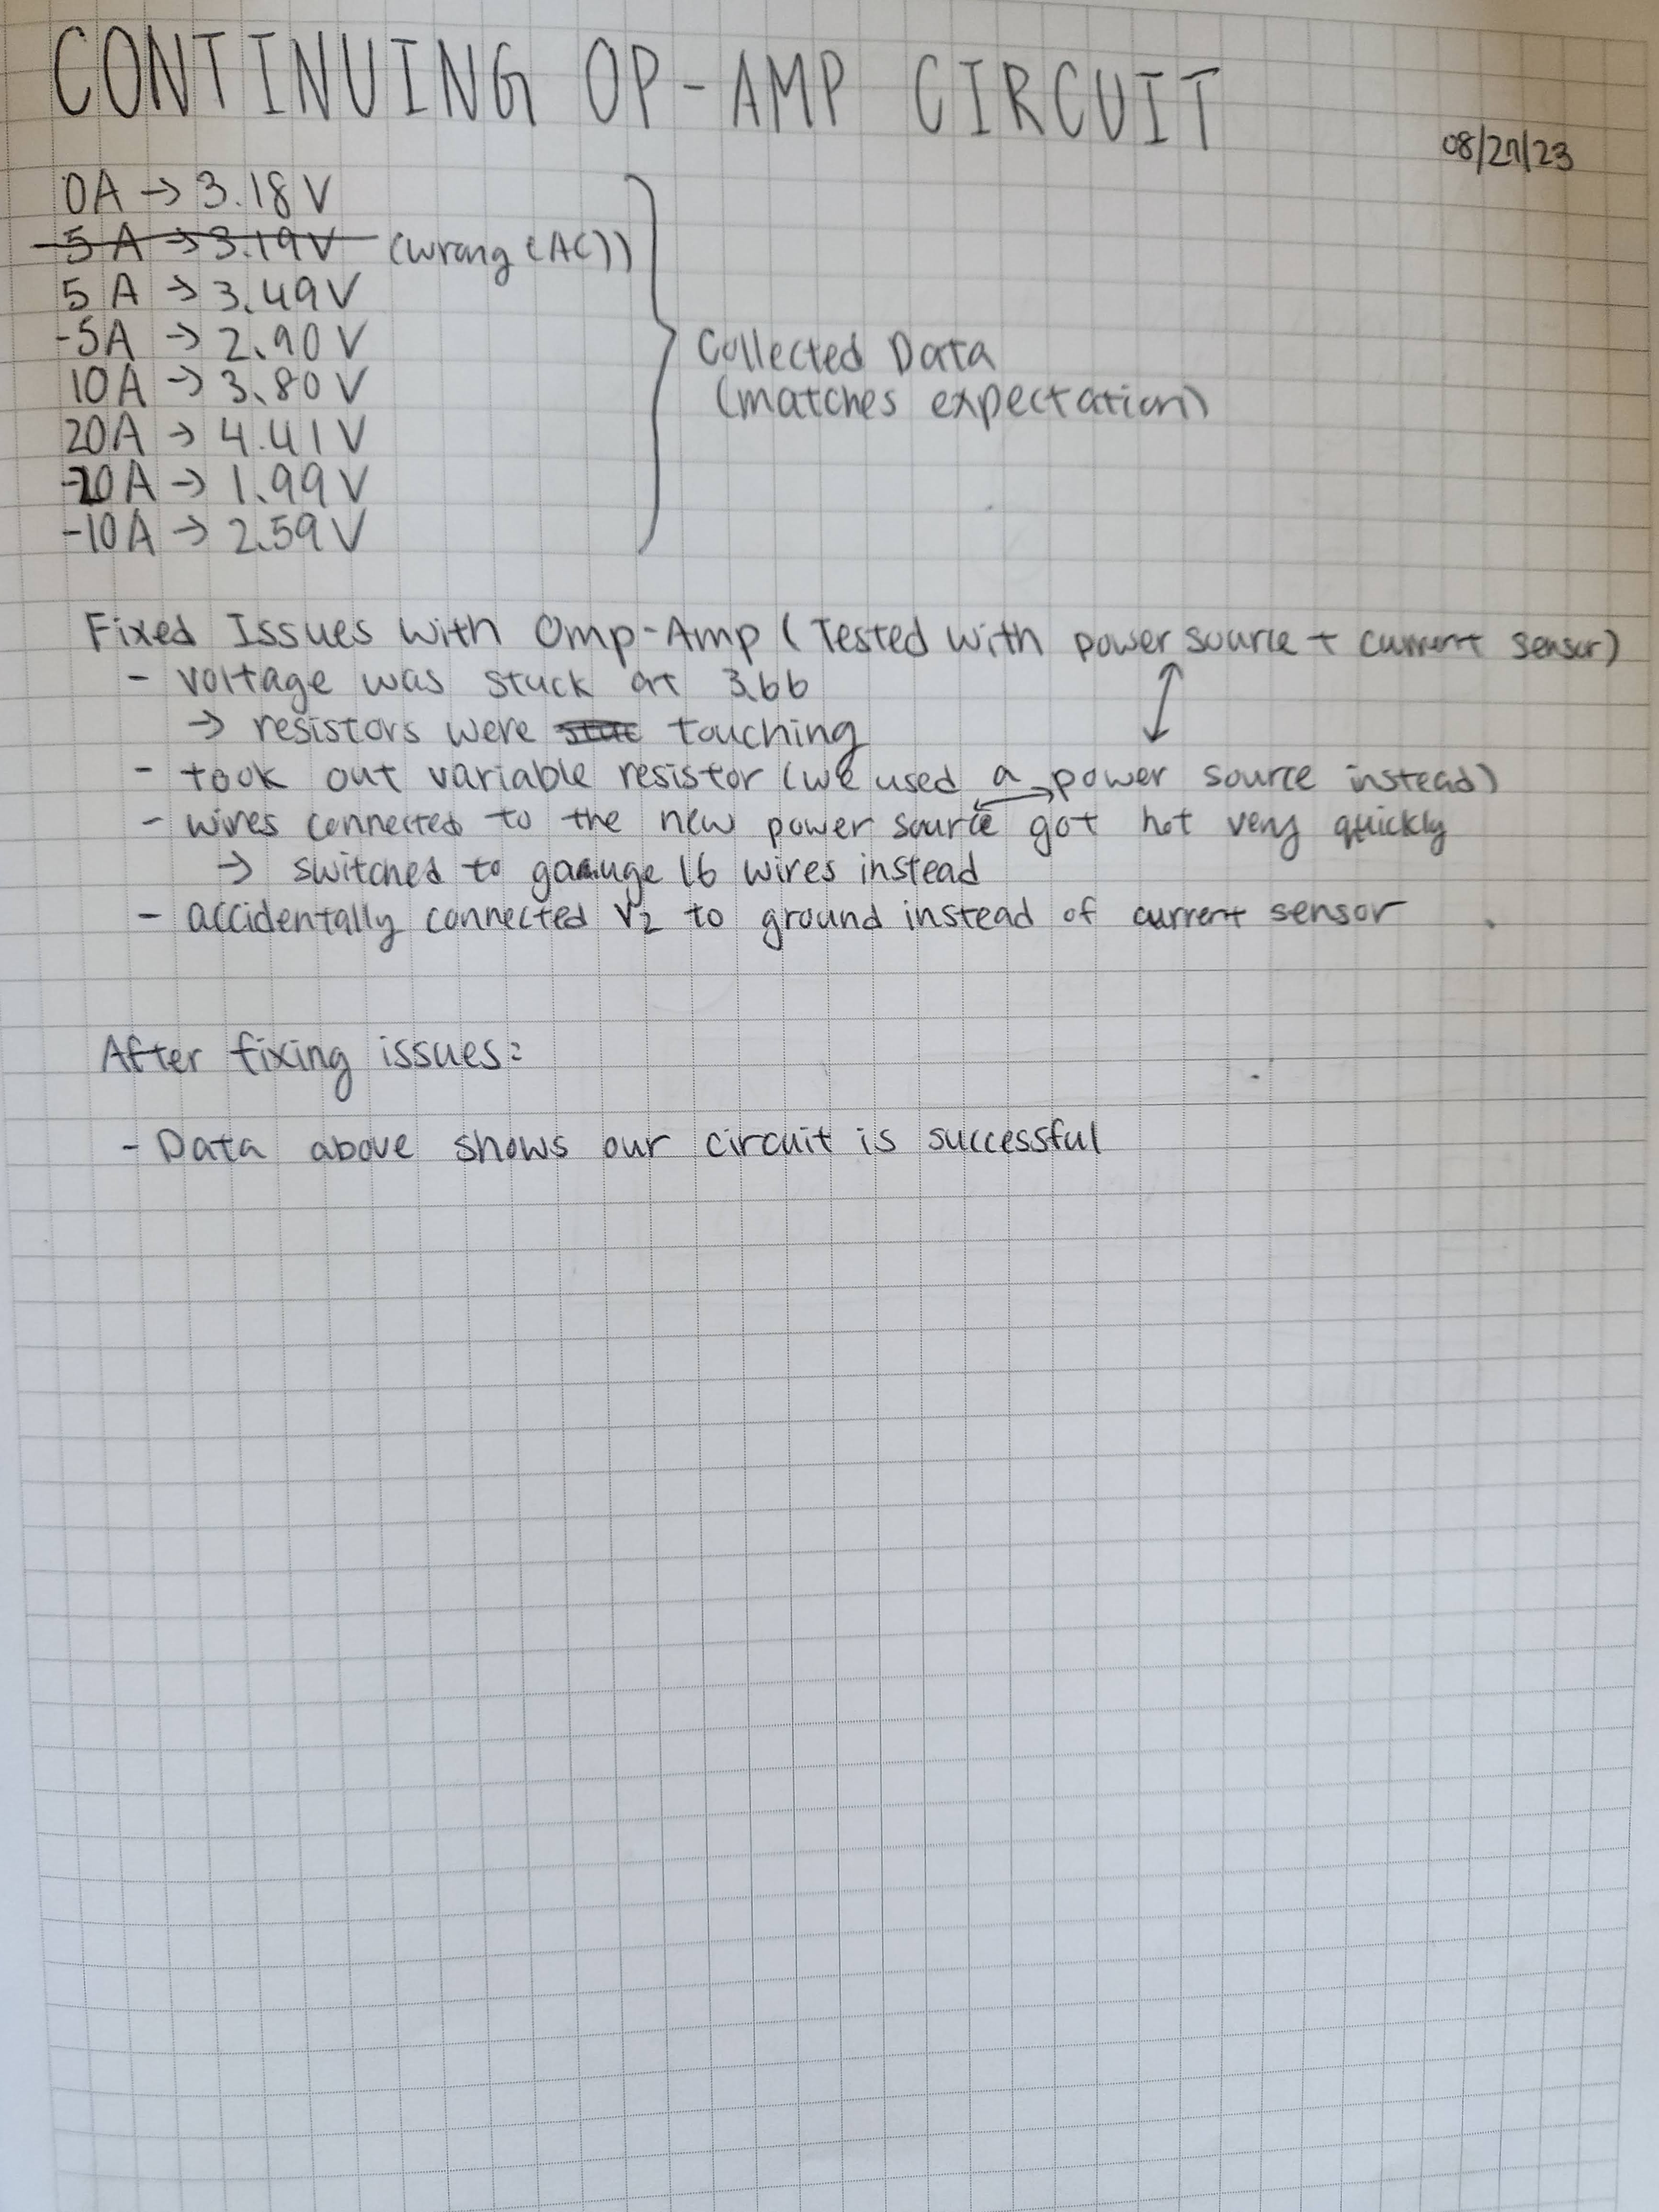 CONTINUING OP-AMP CIRCUIT
08/27/23
0A → 3.18 V
5 A → 3.19V (wrong (AC))
5 A → 3.49V
-5A → 2.90 V
10A → 3.80 V
20A → 4.41 V
-20A → 1.99 V
-10A → 2.59 V
Collected Data
(matches expectation)
Fixed Issues with Omp-Amp (Tested with power source + current sensor)
- voltage was stuck at 3.66
→ resistors were touching
- took out variable resistor (we used a power source instead)
- wires connected to the new power source got hot very quickly
→ switched to gauge 16 wires instead
- accidentally connected V2 to ground instead of current sensor
After fixing issues:
- Data above shows our circuit is successful